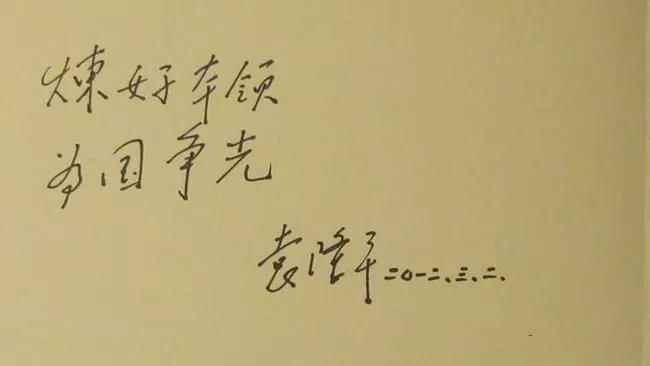 炼好本领
为国争光
袁隆平 二〇一二、三、二、